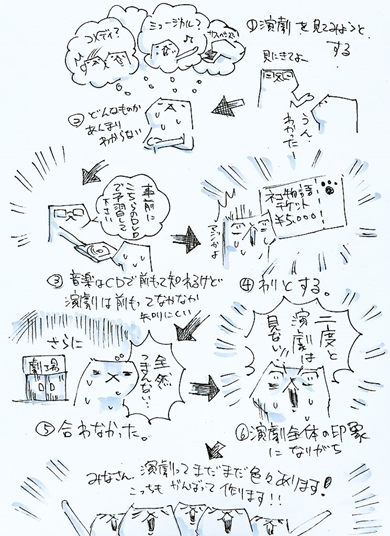 ①演劇を見てみようと
する
見にきてよー
うん
わかった
コメディ?
ミュージカル?
サスペンス?
②どんなものか
あんまり
わからない
事前に
こちらのDVD
で予習して
下さい
③音楽はCDで前もって知れるけど
演劇は前もってなかなか
知りにくい
ネコ物語
チケット
¥5,000!
④わりとする。
さらに
劇場
全然
つまんない…
⑤合わなかった。
二度と
演劇は
見ない!
⑥演劇全体の印象
になりがち
みなさん、演劇ってまだまだ色々あります!
こっちもがんばって作ります!!